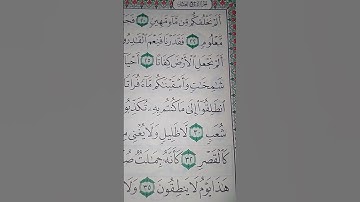 أَلَمْ نَخْلُقكُّم مِّن مَّآءٍ مَّهِينٍ ٢٠ فَجَ
مَّعْلُومٍ ٢٢ فَقَدَرْنَا فَنِعْمَ ٱلْقَٰدِرُو
أَلَمْ نَجْعَلِ ٱلْأَرْضَ كِفَاتًا ٢٥ أَحْيَا
شَٰمِخَٰتٍ وَأَسْقَيْنَٰكُم مَّآءً فُرَاتًا
ٱنطَلِقُوٓا۟ إِلَىٰ مَا كُنتُم بِهِۦ تُكَذِّبُو
شُعَبٍ ٣٠ لَّا ظَلِيلٍ وَلَا يُغْنِى مِ
كَٱلْقَصْرِ ٣٢ كَأَنَّهُۥ جِمَٰلَتٌ صُ
هَٰذَا يَوْمُ لَا يَنطِقُونَ ٣٥ وَلَا